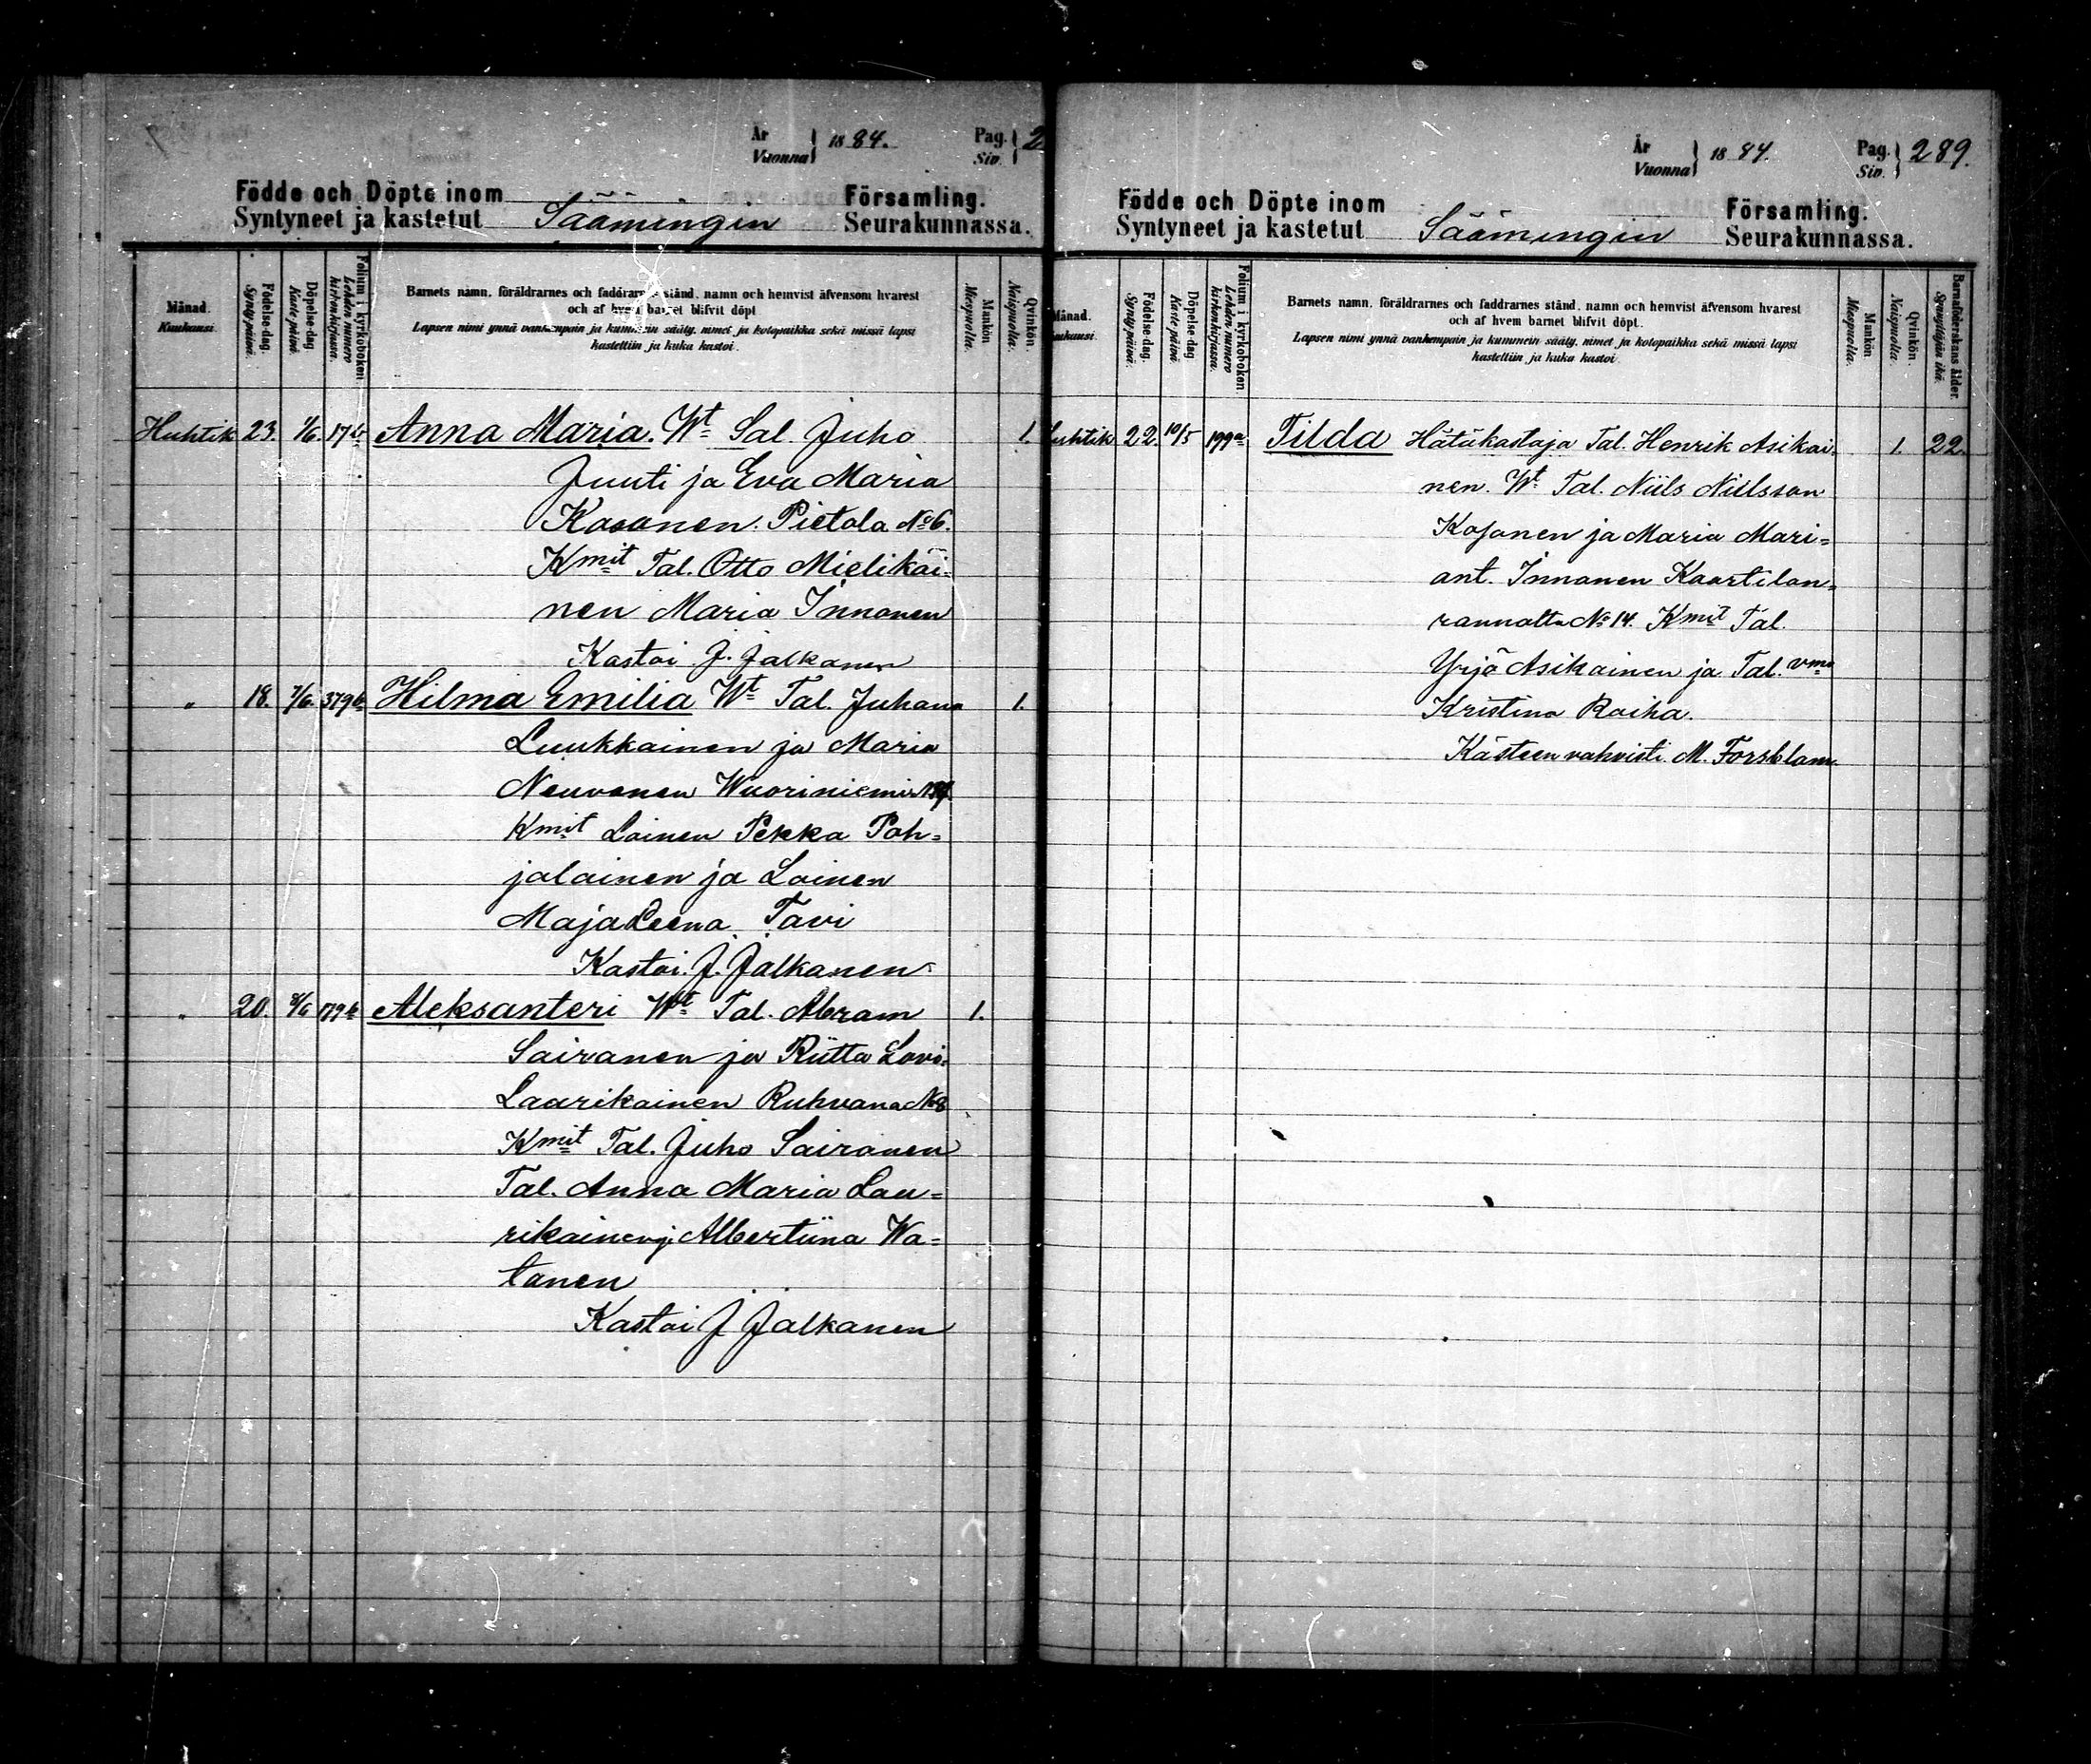 År
Vuonna } 1884.
Pag.
Siv. } 2
Födde och Döpte inom
Syntyneet ja kastetut Säämingin
Församling.
Seurakunnassa.
Månad.
Kuukausi.
Födelse-dag.
Synty-päivä.
Döpelse-dag
Kaste-päivä.
Folium i kyrkoboken.
Lehden numero kirkonkirjassa.
Barnets namn, föräldrarnes och faddrarnes stånd, namn och hemvist äfvensom hvarest
och af hvem barnet blifvit döpt
Lapsen nimi ynnä vanhempain ja kummein sääty, nimet ja kotopaikka sekä missä lapsi
kastettiin ja kuka kastoi.
Mankön
Miespuolta.
Qvinkön.
Naispuolta.
Huhtik 23. 1/6. 17b. Anna Maria. Wt Tal. Juho 1.
Juuti ja Eva Maria
Kosonen. Pietola No 6.
Kmit Tal. Otto Mielikäi=
nen Maria Innonen
Kastoi J. Jalkanen
" 18. 7/6. 379b. Hilma Emilia Wt Tal. Juhana 1.
Luukkainen ja Maria
Neuvonen Wuoriniemi
Kmit Loinen Pekka Poh=
jalainen ja Loinen
Maja Leena Tavi
Kastoi. J. Jalkanen
" 20. 8/6 179b Aleksanteri Wt Tal. Abram 1.
Sairanen ja Riitta Lovi=
Laurikainen Ruhvana No 8
Kmit Tal. Juho Sairanen
Tal. Anna Maria Lau=
rikainen j. Albertiina Wa=
tanen
Kastoi J Jalkanen
År
Vuonna } 1884.
Pag.
Siv. } 289.
Födde och Döpte inom
Syntyneet ja kastetut Säämingin
Församling.
Seurakunnassa.
Månad.
Kuukausi.
Födelse-dag.
Synty-päivä.
Döpelse-dag
Kaste-päivä.
Folium i kyrkoboken.
Lehden numero kirkonkirjassa.
Barnets namn, föräldrarnes och faddrarnes stånd, namn och hemvist äfvensom hvarest
och af hvem barnet blifvit döpt.
Lapsen nimi ynnä vanhempain ja kummein sääty, nimet ja kotopaikka sekä missä lapsi
kastettiin ja kuka kastoi
Mankön
Miespuolta.
Qvinkön.
Naispuolta.
Barnaföderskans ålder.
Synnyttäjän ikä.
Huhtik 22. 10/5 199a Tilda Hätäkastaja Tal. Henrik Asikai= 1. 22.
nen. Wt Tal. Niils Niilsson
Kosonen ja Maria Mari=
ant. Innanen Kaartilan=
rannalta No 14. Kmit Tal.
Yrjö Asikainen ja Tal. vmo
Kristina Raiha.
Kasteen vahvisti M. Forsblom